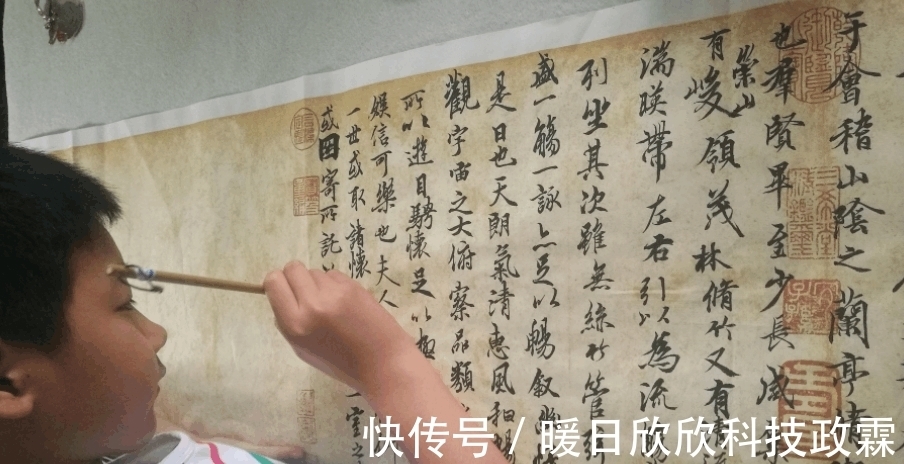 于會稽山陰之蘭亭脩
也羣賢畢至少長咸
有崇山峻領茂林脩竹又有
湍暎帶左右引以為流
列坐其次雖無絲竹管
盛一觴一詠亦足以暢敘
是日也天朗氣清惠風和
觀宇宙之大俯察品類
所以遊目騁懷足以極
娛信可樂也夫人
一世或取諸懷 一室之
或因寄所託
快传号 / 暖日欣欣科技政霖